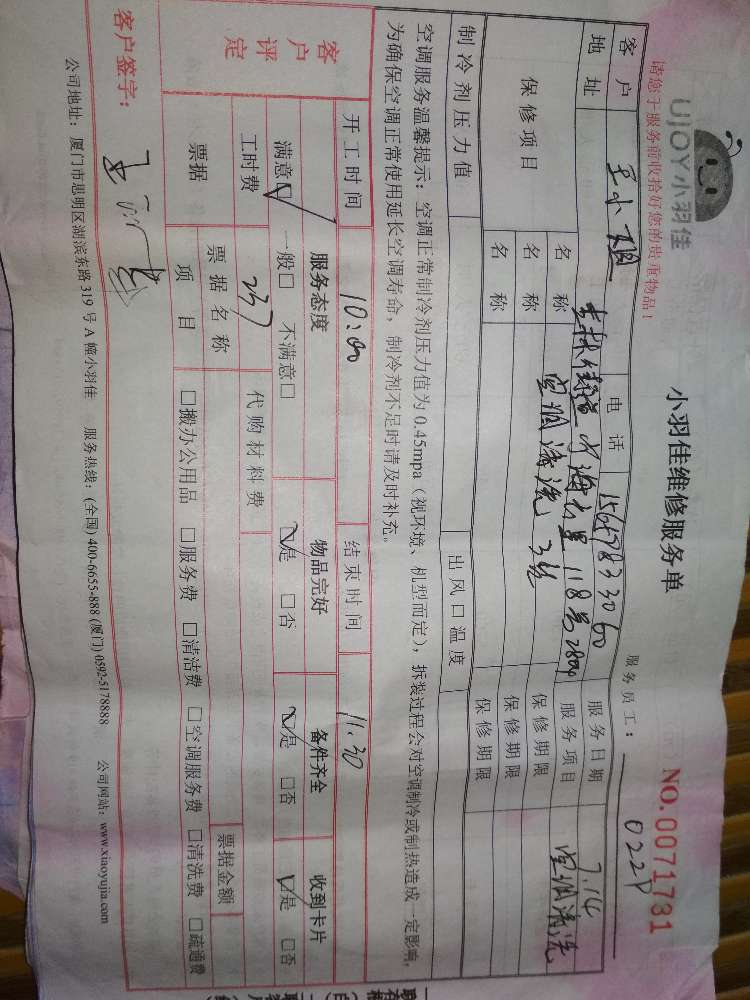 UJOY小羽佳
小羽佳维修服务单
NO.0071731
请您于服务前收拾好您的贵重物品！
服务员工：
客户 王小姐 电话 服务日期 7.14
地址 118号 服务项目 空调清洗
保修项目 名称 空调清洗3台 保修期限
名称 保修期限
名称 保修期限
制冷剂压力值 出风口温度
空调服务温馨提示：空调正常制冷剂压力值为0.45mpa（视环境、机型而定），拆装过程会对空调制冷或制热造成一定影响，
为确保空调正常使用延长空调寿命，制冷剂不足时请及时补充。
开工时间 10:00 结束时间 11:30
客户评定 服务态度 物品完好 备件齐全 收到卡片
满意□ 一般□ 不满意□ □是 □否 □是 □否 □是 □否
工时费 237 代购材料费
票据 票据名称 票据金额
项目 □搬办公用品 □服务费 □清洁费 □空调服务费 □清洗费 □疏通费
客户签字：
公司地址：厦门市思明区湖滨东路319号A幢小羽佳 服务热线：(全国) 400-6655-888 (厦门) 0592-5178888 公司网站：www.xiaoyujia.com